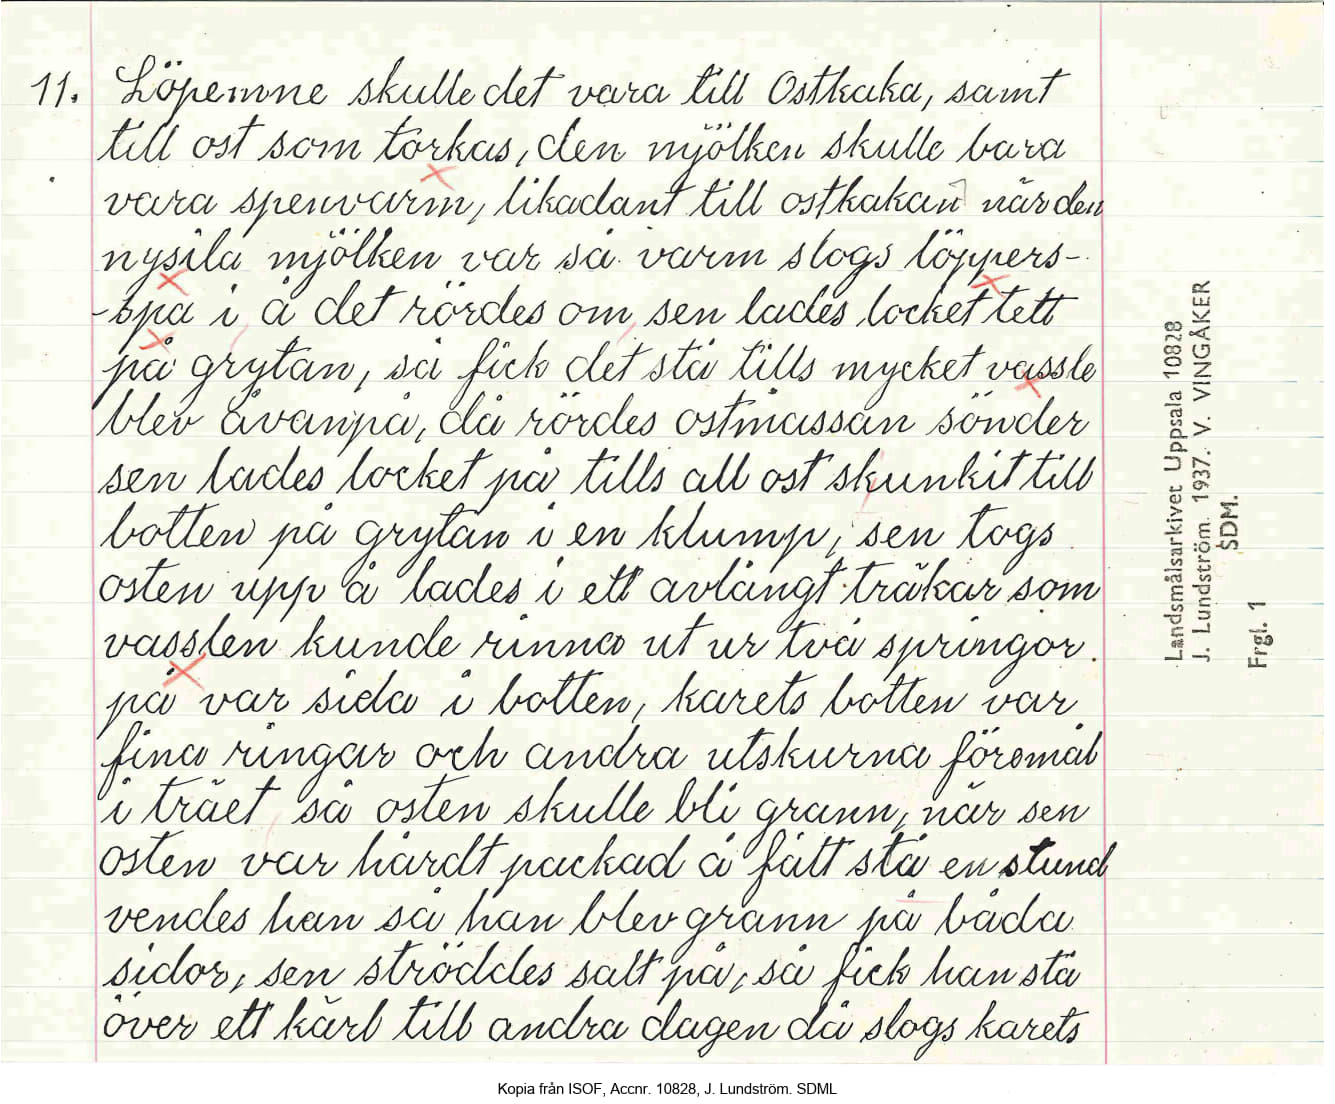 11. Löpemne skulle det vara till Ostkaka, samt
till ost som torkas, den mjölken skulle bara
vara spenvarm, likadant till ostkakan när den
nysila mjölken var så varm slogs löppers-
-spa i å det rördes om sen lades locket tett
på grytan, så fick det stå tills mycket vassle
blev åvanpå, då rördes ostmassan sönder
sen lades locket på tills all ost skunkit till
botten på grytan i en klump, sen togs
osten upp å lades i ett avlångt träkar som
vasslen kunde rinna ut ur två springor
på var sida i botten, karets botten var
fina ringar och andra utskurna föremål
i träet så osten skulle bli grann, när sen
osten var hårdt packad å fått stå en stund
vendes han så han blev grann på båda
sidor, sen ströddes salt på, så fick han stå
över ett kärl till andra dagen då slogs karets
Landsmålsarkivet Uppsala 10828
J. Lundström. 1937. V. VINGÅKER
SDM.
Frgl. 1
Kopia från ISOF, Accnr. 10828, J. Lundström. SDML